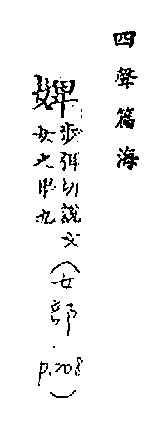 四聲篇海
婢
步弭切說文
女之卑也
(女部 p.208)